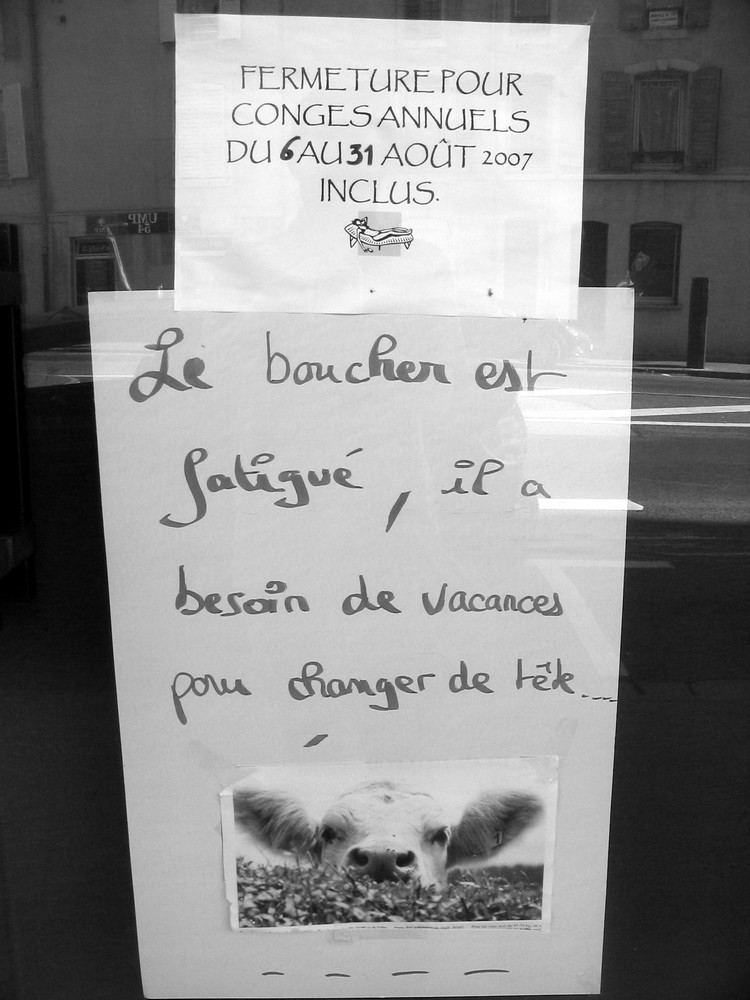 FERMETURE POUR
CONGES ANNUELS
DU 6 AU 31 AOÛT 2007
INCLUS.
UMP
54
Le boucher est
fatigué, il a
besoin de vacances
pour changer de tête...